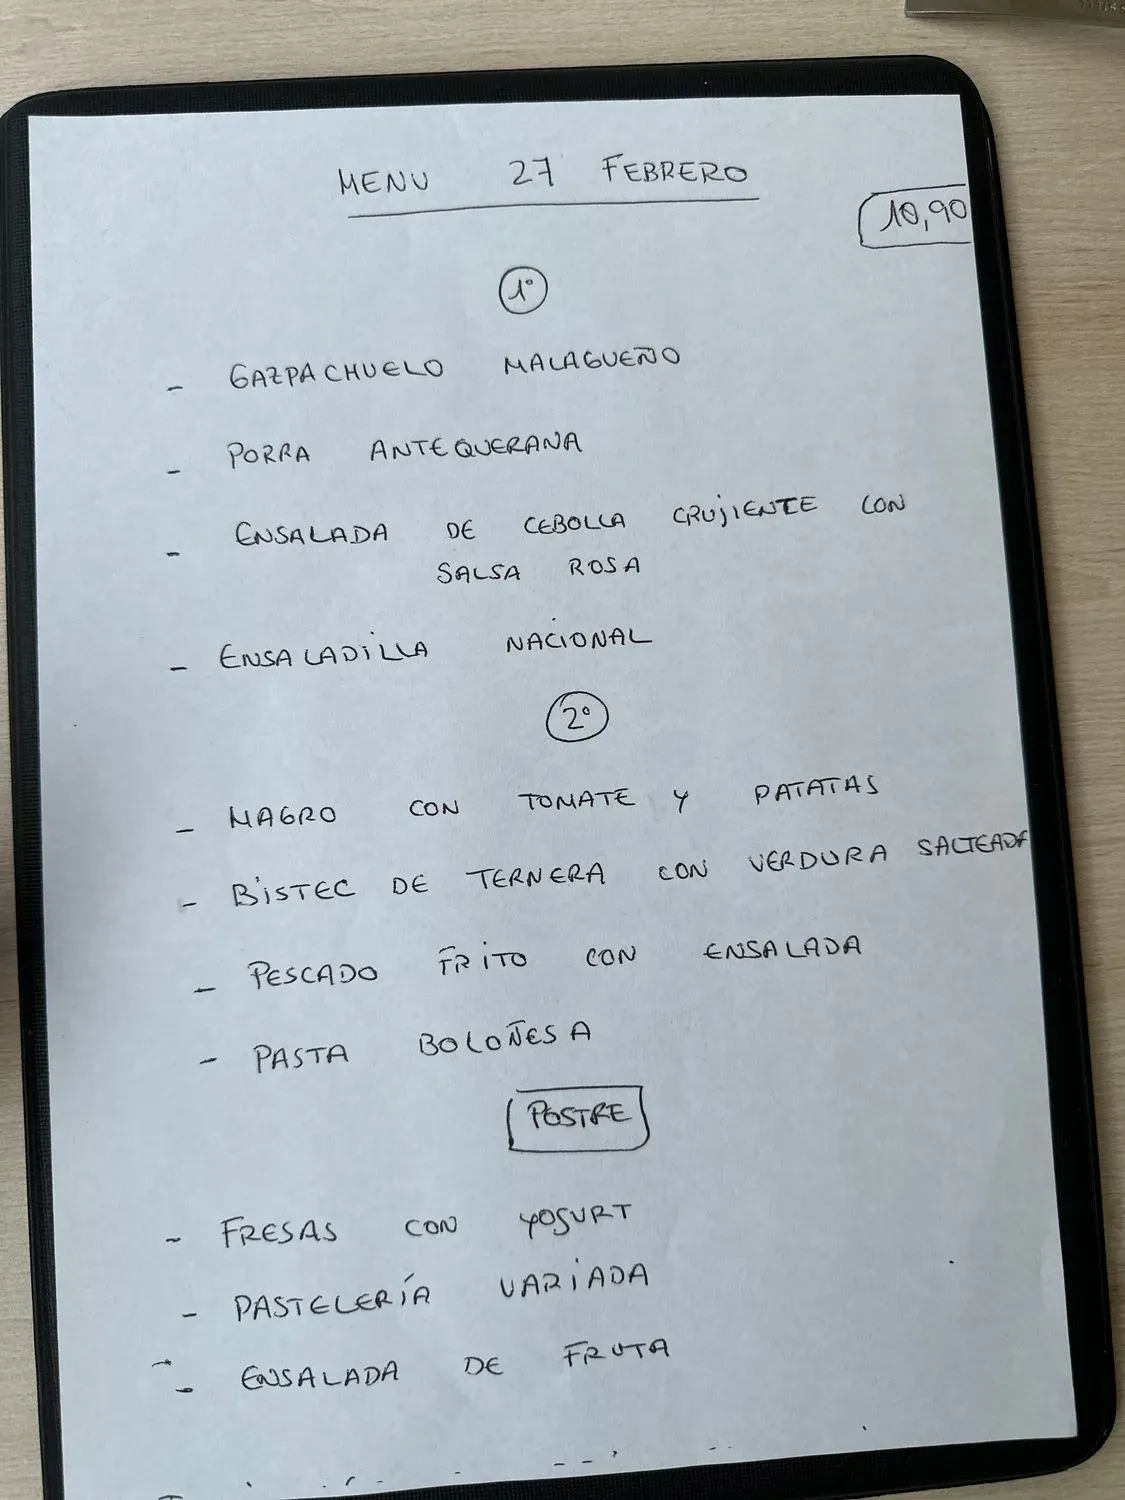 MENU 27 FEBRERO
10,90
1º
- GAZPACHUELO MALAGUEÑO
- PORRA ANTEQUERANA
- ENSALADA DE CEBOLLA CRUJIENTE CON
SALSA ROSA
- ENSALADILLA NACIONAL
2º
- MAGRO CON TOMATE Y PATATAS
- BISTEC DE TERNERA CON VERDURA SALTEADA
- PESCADO FRITO CON ENSALADA
- PASTA BOLOÑESA
POSTRE
- FRESAS CON YOGURT
- PASTELERÍA VARIADA
- ENSALADA DE FRUTA